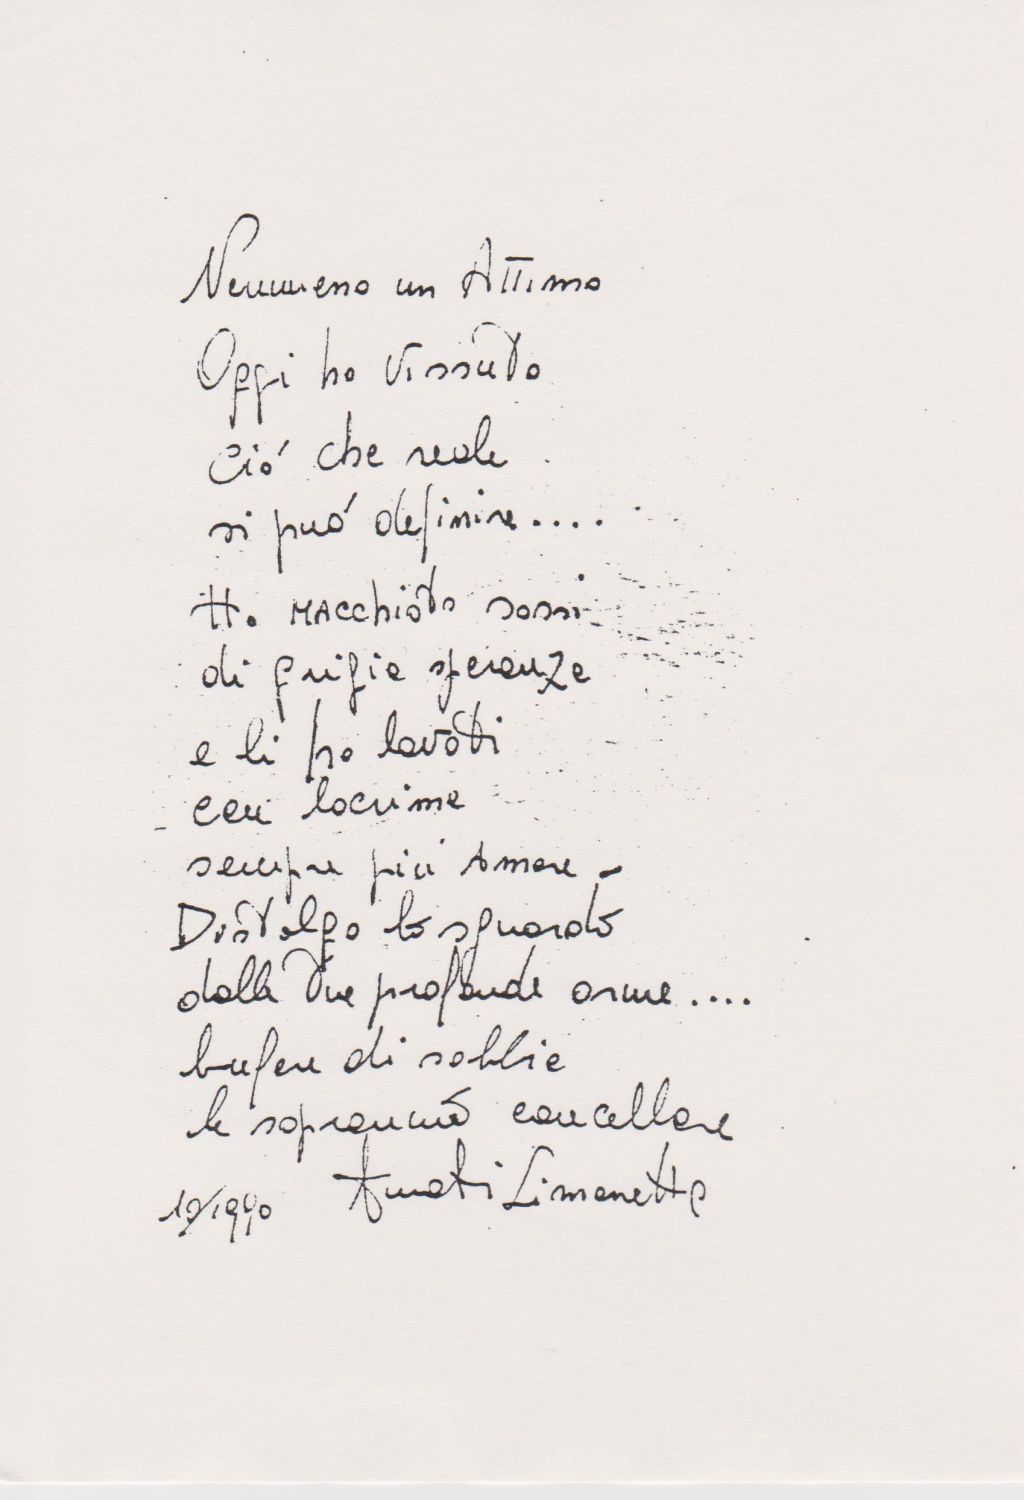 Nemmeno un Attimo
Oggi ho vissuto
ció che reale
si puó definire....
Ho MACCHiato sassi
di grigie speranze
e li ho lavati
con lacrime
sempre più Amare -
Distolgo lo sguardo
dalle tue profonde orme....
bufere di sabbie
le sapranno cancellare
Amati Simonetta
10/1990